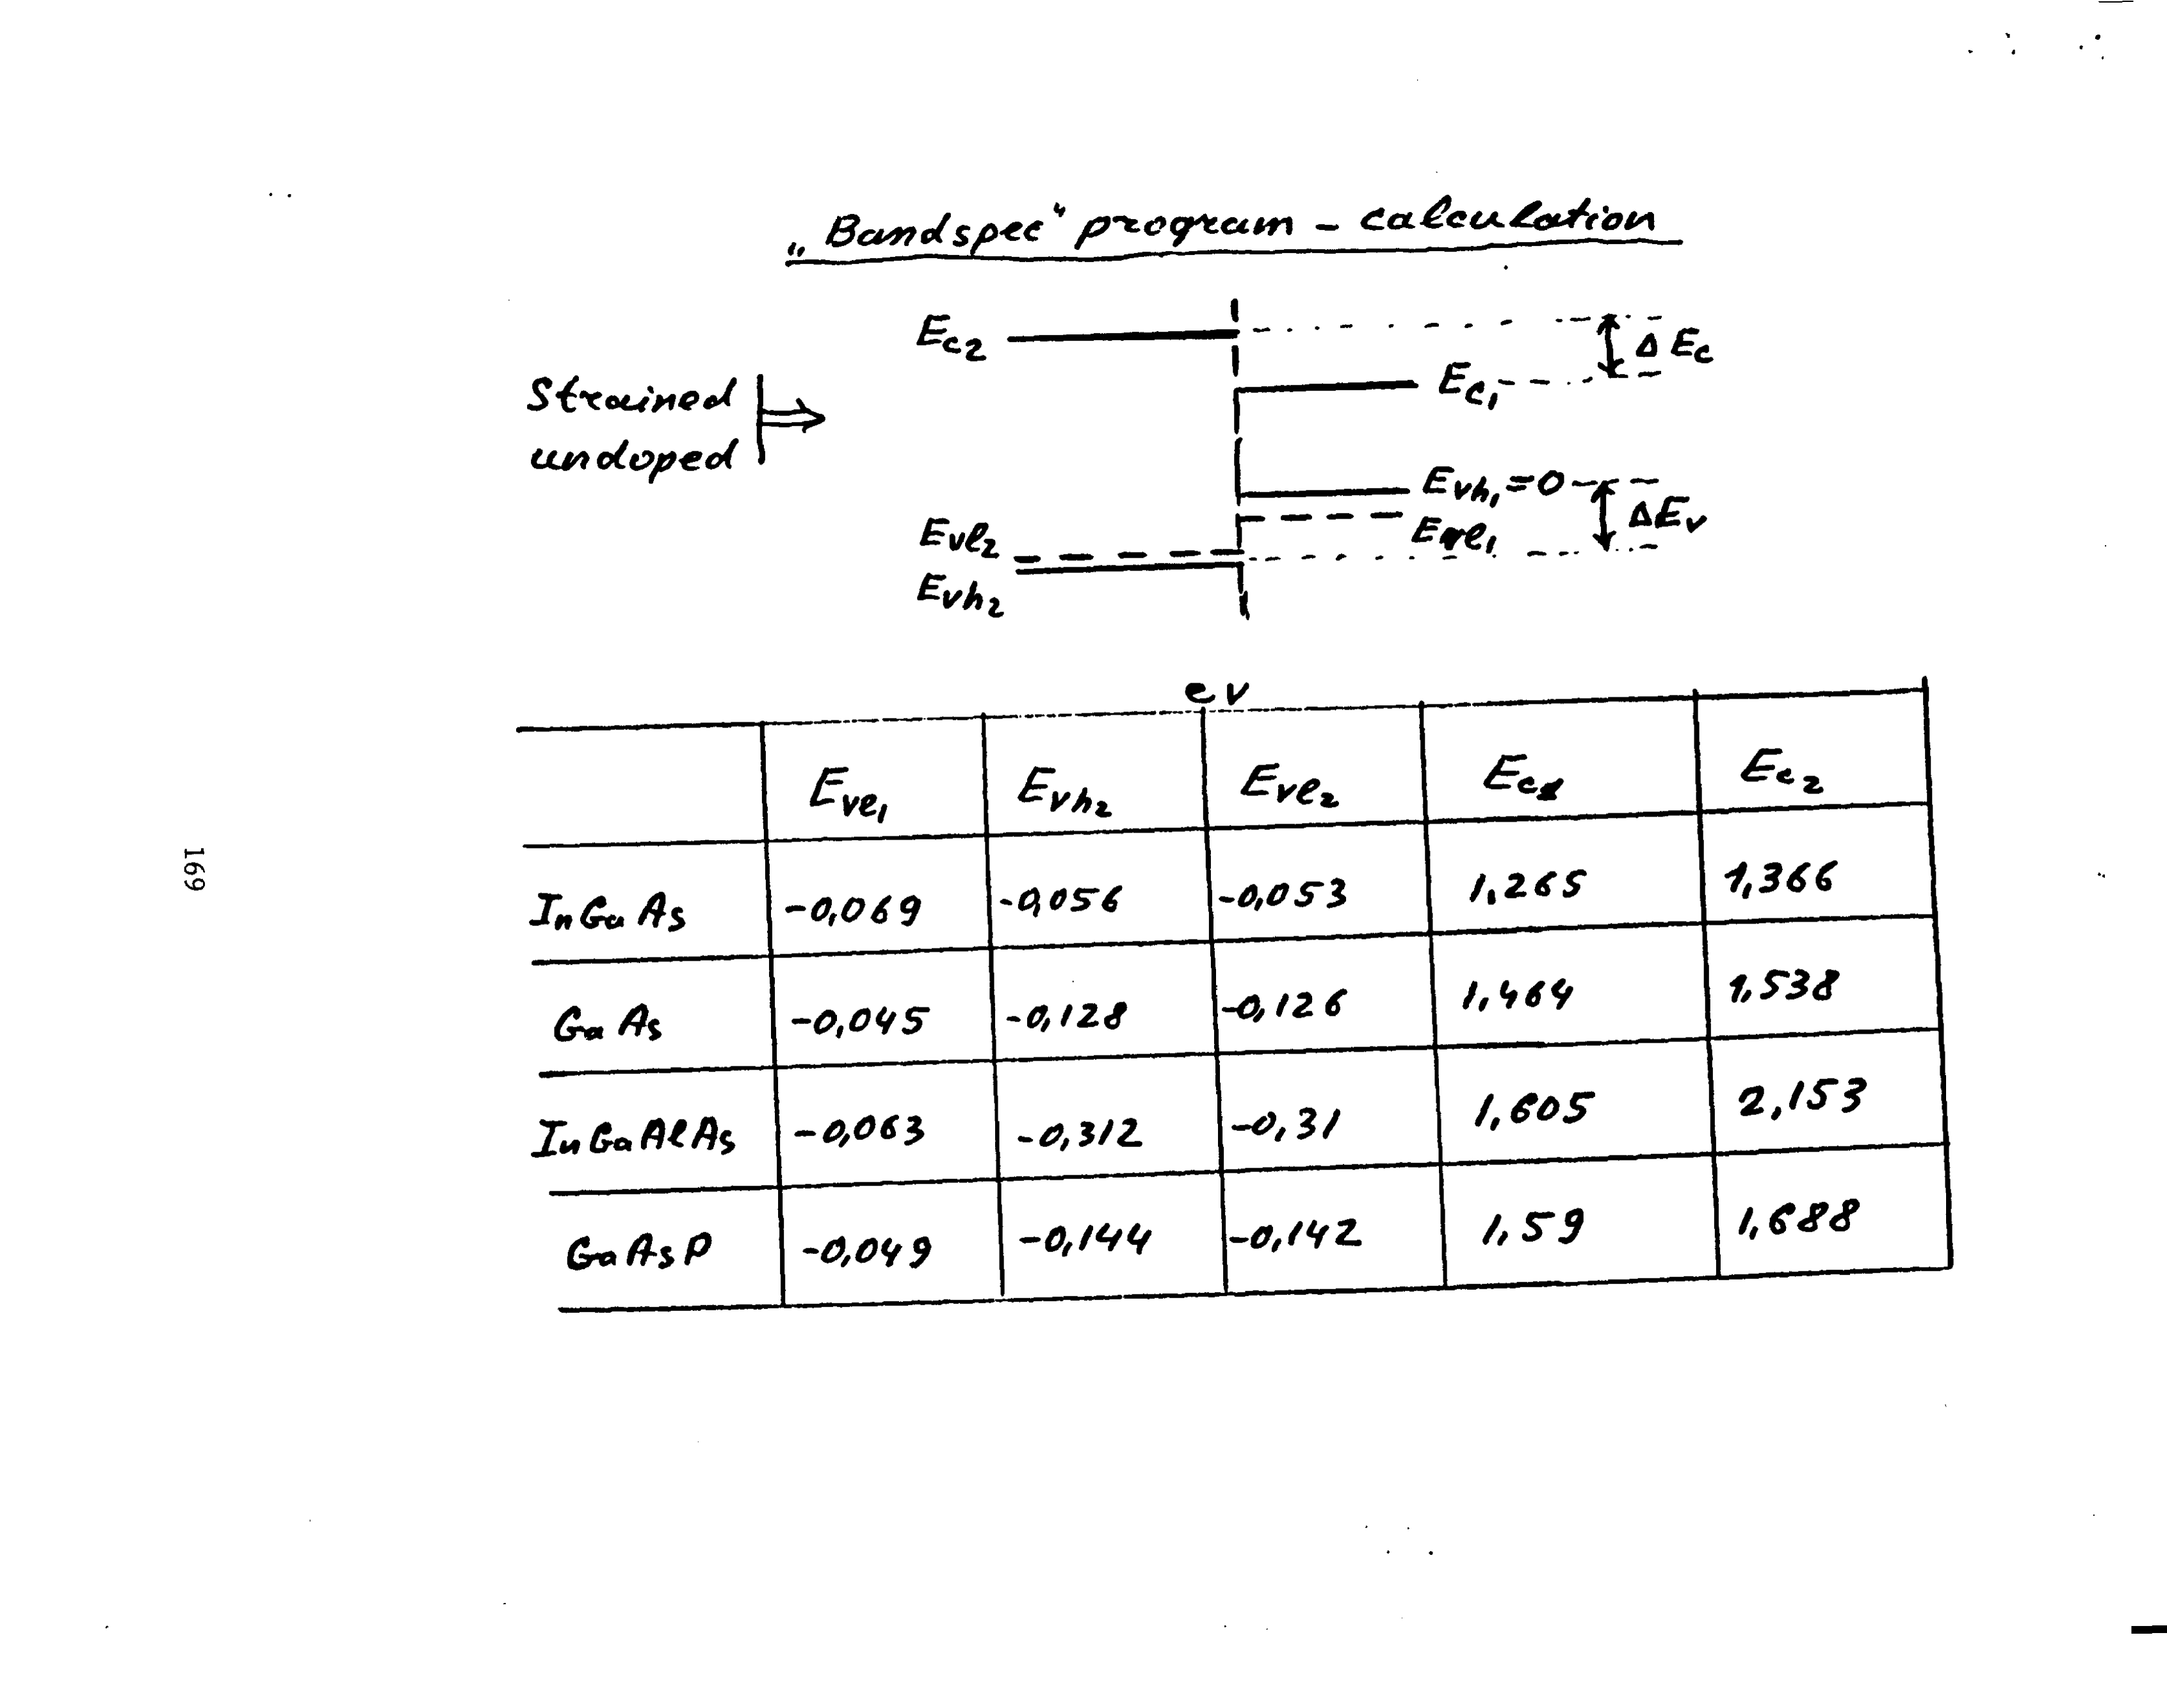 „Bandspec" program - calculation
Ec2
ΔEc
Ec1
Strained
undoped
Evh1=0
ΔEv
Evl1
Evl2
Evh2
eV
Evl1 Evh2 Evl2 Ec1 Ec2
InGaAs -0,069 -0,056 -0,053 1,265 1,366
GaAs -0,045 -0,128 -0,126 1,464 1,538
InGaAlAs -0,063 -0,312 -0,31 1,605 2,153
GaAsP -0,049 -0,144 -0,142 1,59 1,688
169